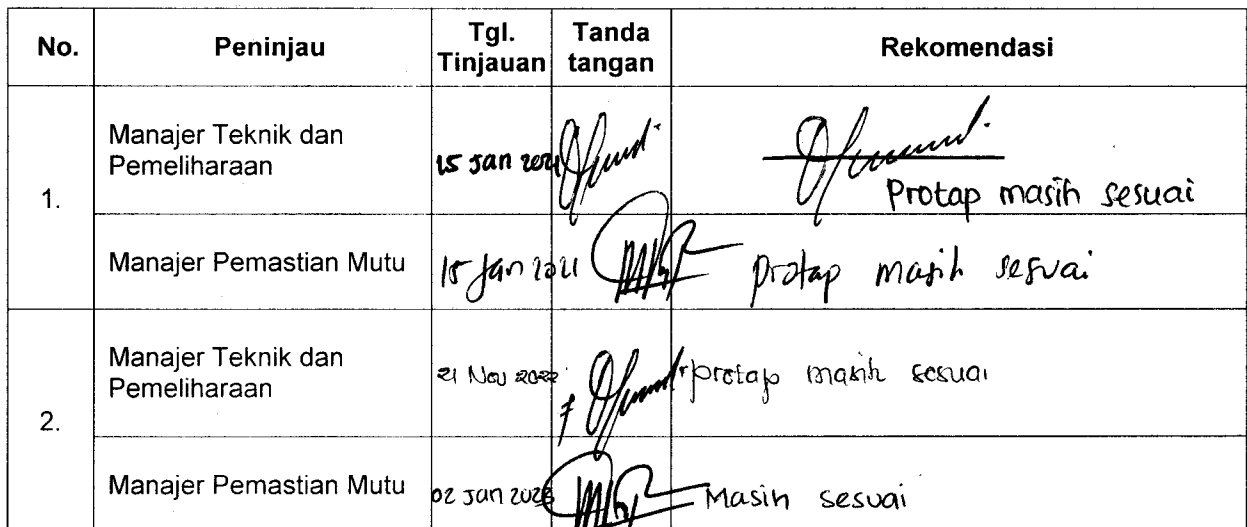 No. Peninjau Tgl. Tinjauan Tanda tangan Rekomendasi
1.
Manajer Teknik dan
Pemeliharaan
15 Jan 2021
Protap masih sesuai
Manajer Pemastian Mutu
15 Jan 2021
protap masih sesuai
2.
Manajer Teknik dan
Pemeliharaan
21 Nov 2022
protap masih sesuai
Manajer Pemastian Mutu
02 Jan 2023
Masih sesuai